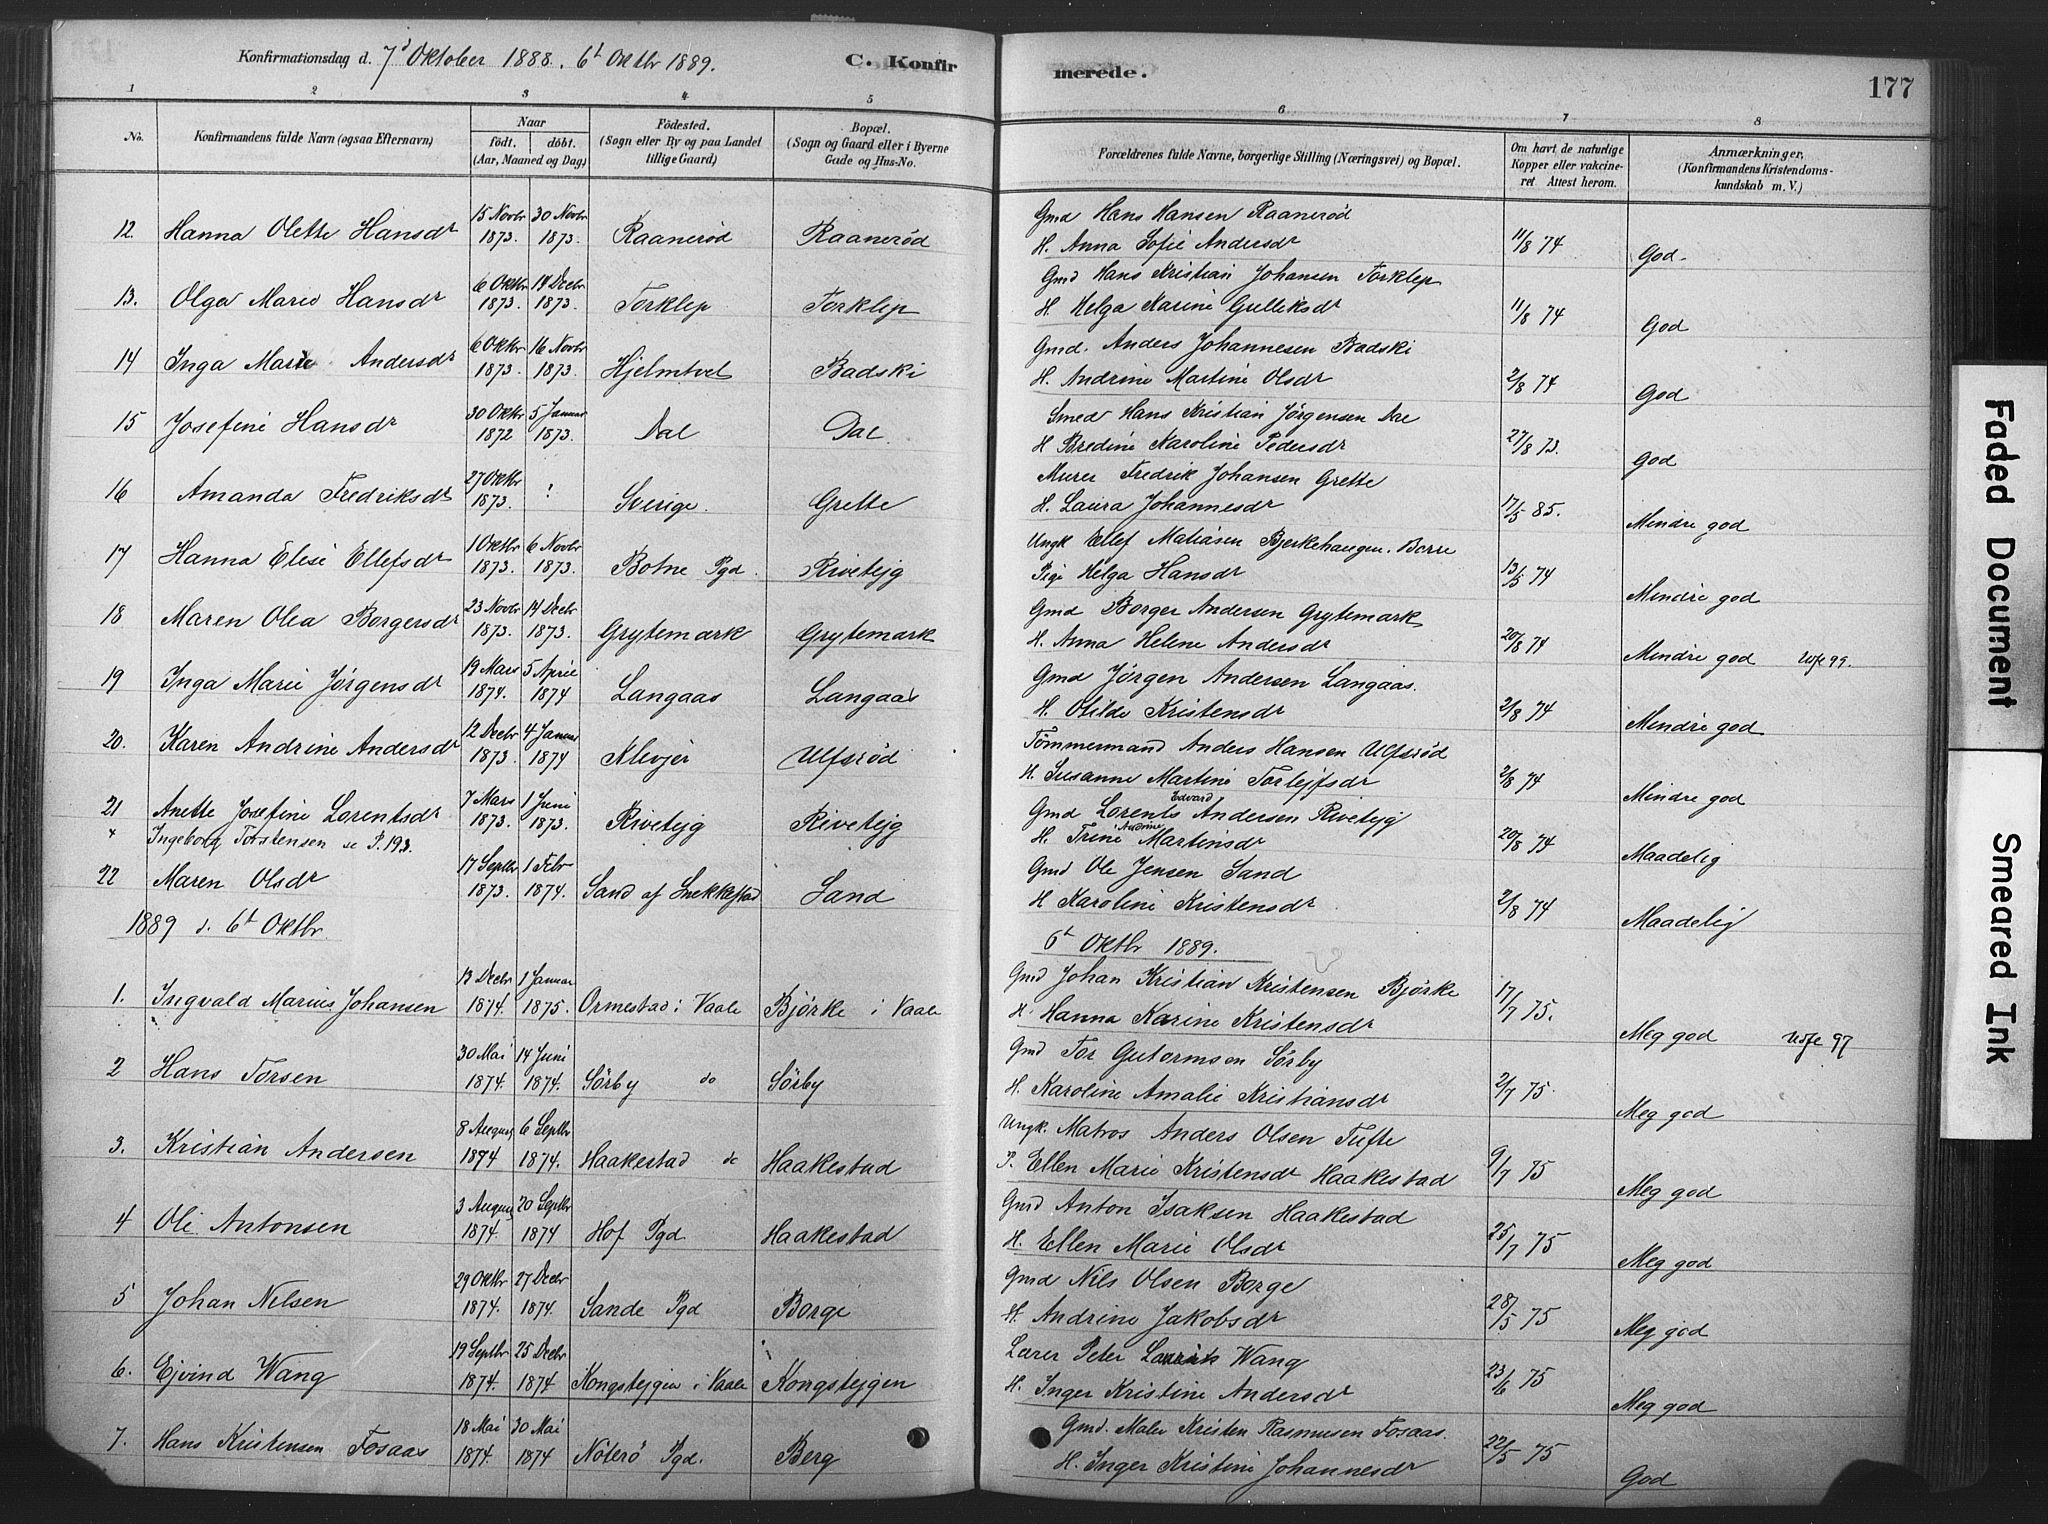 Konfirmationsdag d. 7d Oktober 1888. 6t Oktbr 1889.
C. Konfirmerede.
177
1 2 3 4 5 6 7 8
No. Konfirmandens fulde Navn (ogsaa Efternavn) Naar födt. döbt. (Aar, Maaned og Dag) Födested. (Sogn eller By og paa Landet tillige Gaard) Bopæl. (Sogn og Gaard eller i Byerne Gade og Hus-No. Forældrenes fulde Navne, borgerlige Stilling (Næringsvei) og Bopæl. Om havt de naturlige Kopper eller vakcineret Attest herom. Anmærkninger. (Konfirmandens Kristendomskundskab m. V.)
12. Hanna Olette Hansdr 15 Novbr 1873. 30 Novbr 1873. Raanerød Raanerød Gmd Hans Hansen Raanerød
H. Anna Sofie Andersdr 11/8 74 God
13. Olga Marie Hansdr 6 Oktbr 1873. 14 Decbr 1873. Torklep Torklep Gmd Hans Kristian Johansen Torklep
H. Helga Karine Gulliksdr 11/8 74 God
14 Inga Marie Andersdr 6 Oktbr 1873. 16 Novbr 1873. Hjelmtvet Badski Gmd. Anders Johannesen Badski
H. Andrine Martine Olsdr 2/8 74 God
15 Josefine Hansdr 30 Oktbr 1872 5 Januar 1873. Dal Dal Smed Hans Kristian Jørgensen Dal
H Bredine Karoline Pedersdr 27/8 73. God
16 Amanda Fredriksdr 27 Oktbr 1873. ? Sverige. Grette Murer Fredrik Johansen Grette
H. Laura Johannesdr 17/5 85. Mindre god
17 Hanna Elise Ellefsdr 1 Oktbr 1873. 6 Novbr 1873. Botne Pgd. Rivetejg Ungk Ellef Matiasen Bjerkehaugen. Borre
Pige Helga Hansdr 13/5 74 Mindre god
18 Maren Olea Borgersdr 23 Novbr 1873. 14 Decbr 1873. Grytemark Grytemark Gmd Borger Andersen Grytemark
H. Anna Helene Andersdr 20/8 74 Mindre god 99.
19 Inga Marie Jørgensdr 19 Mars 1874. 5 April 1874 Langaas Langaas Gmd Jørgen Andersen Langaas.
H. Otilde Kristensdr 2/8 74 Mindre god
20. Karen Andrine Andersdr 12 Decbr 1873. 4 Januar 1874 Klevjer Ulfsrød Tömmermand Anders Hansen Ulfsrød
H. Susanne Martine Torlejfsdr 2/8 74 Mindre god
21 Anette Josefine Larentsdr 7 Mars 1873. 1 Juni 1873. Rivetejg Rivetejg Gmd Larents Edvard Andersen Rivetejg
Ingeborg Torstensen se P. 193. H. Trine Andrine Martinsdr 20/8 74 Maadelig
22 Maren Olsdr 17 Septbr 1873. 1 Febr 1874. Sand af Snekkestad Sand Gmd Ole Jensen Sand
H Karoline Kristensdr 2/8 74 Maadelig
1889 d. 6t Oktbr. 6t Oktbr 1889.
1. Ingvald Marius Johansen 12 Decbr 1874. 1 Januar 1875. Ormestad i Vaale Bjørke i Vaale Gmd Johan Kristian Kristensen Bjørke
H. Hanna Karine Kristensdr 17/7 75. Meg god 97
2 Hans Torsen 30 Mai 1874. 14 Juni 1874. Sørby do Sørby Gmd Tor Gutormsen Sørby
H. Karoline Amalie Kristiansdr 2/7 75. Meg god
3. Kristian Andersen 8 August 1874 6 Septbr 1874. Haakestad do Haakestad Ungk. Matros Anders Olsen Tufte
P. Ellen Marie Kristensdr Haakestad 9/7 75 Meg god
4 Ole Antonsen 3 August 1874. 20 Septbr 1874 Hof Pgd. Haakestad Gmd Anton Isaksen Haakestad
H. Ellen Marie Olsdr 25/7 75 Meg god
5 Johan Nilsen 29 Oktbr 1874. 27 Decbr 1874. Sande Pgd Borge Gmd Nils Olsen Borge
H. Andrine Jakobsdr 28/5 75 Meg god
6. Ejvind Wang 19 Septbr 1874. 25 Decbr 1874 Kongstejgen i Vaale Kongstejgen Lærer Peter Laurits Wang
H. Inger Kristine Andersdr 23/6 75 Meg god
7. Hans Kristensen Fosaas 18 Mai 1874. 30 Mai 1874 Nøterø Pgd. Berg Gmd. Maler Kristen Rasmusen Fosaas.
H. Inger Kristine Johannesdr 22/5 75 God
Faded Document
Smeared Ink